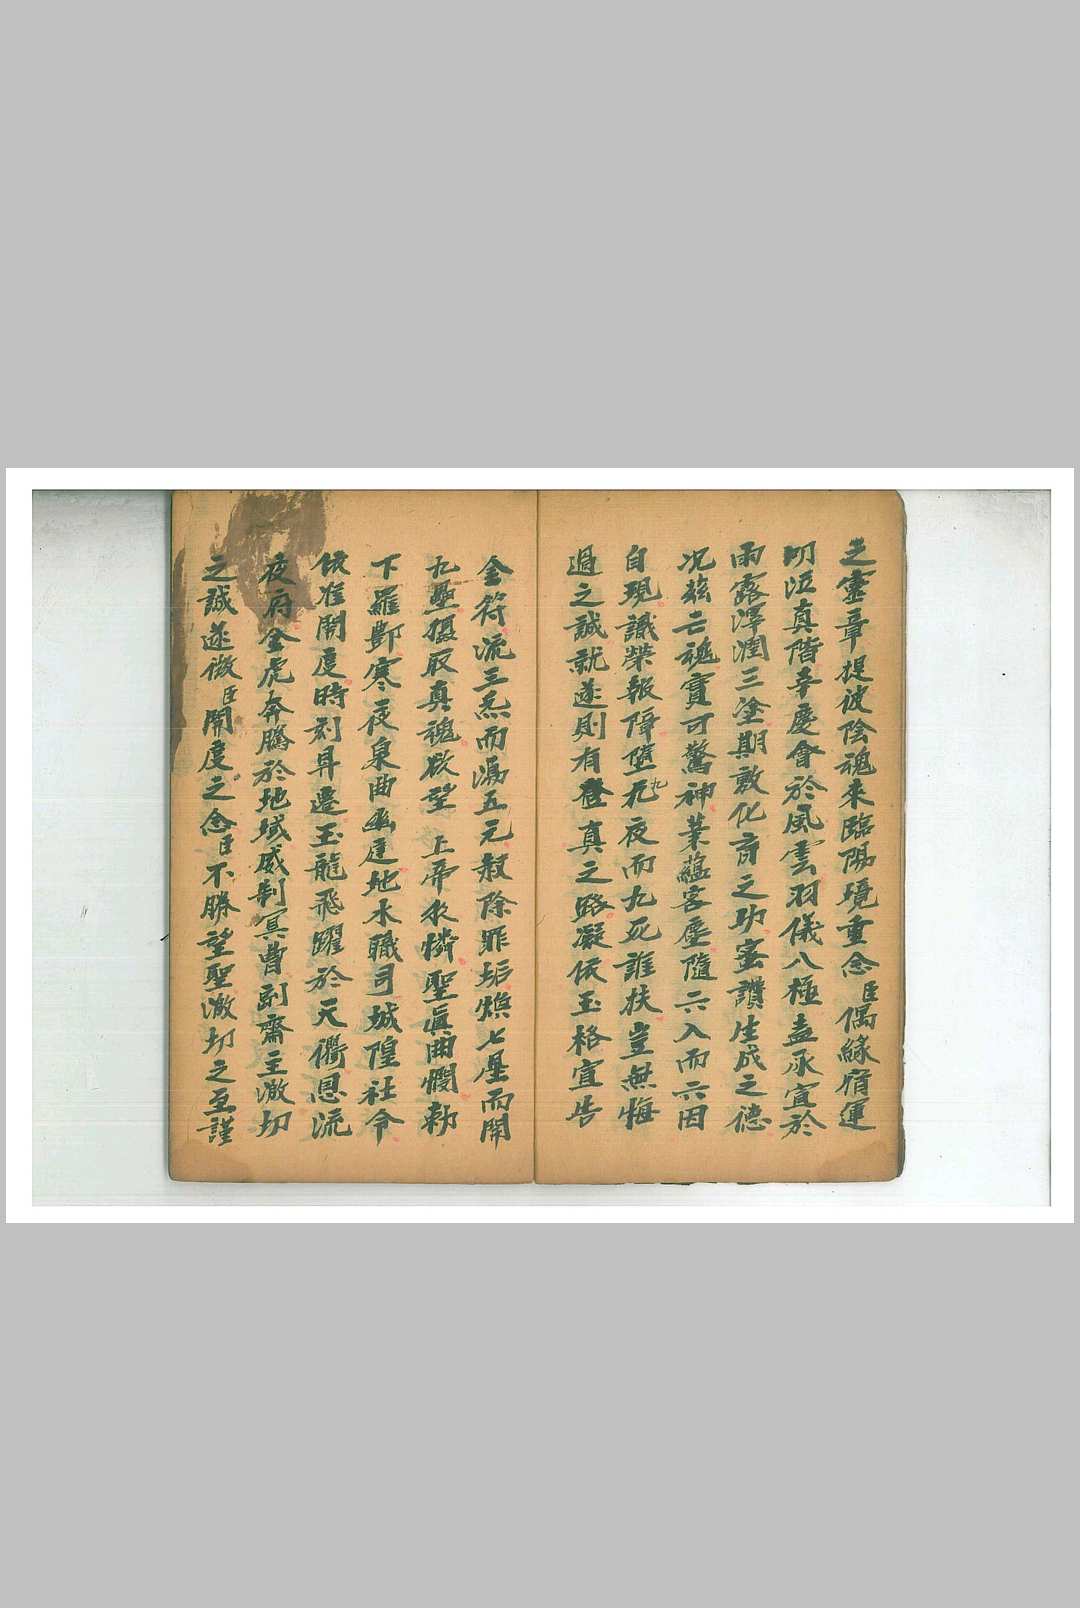 之靈章提彼陰魂来臨陽境重念臣偶緣宿運
叨泣真階幸慶會於風雲羽儀八極盍承宣於
雨露澤潤三塗期敦化育之功蜜讚生成之德
况兹亡魂寶可驚神業蘊客塵隨六入而六因
自現識榮報障墮九夜而九死誰扶豈無悔
過之誠就遂則有登真之路凝依玉格宣告
金符流三炁而瀉五元赦除罪垢煥七星而開
九壘攝取真魂欲望上帝永憐聖真曲憫勅
下羅酆寒夜泉曲幽庭地水職司城隍社令
依准開度時刻昇遷玉龍飛躍於天衢恩流
夜府金虎奔騰於地域威制冥曹副齋主激切
之誠遂微臣開度之念臣不勝望聖激切之至謹